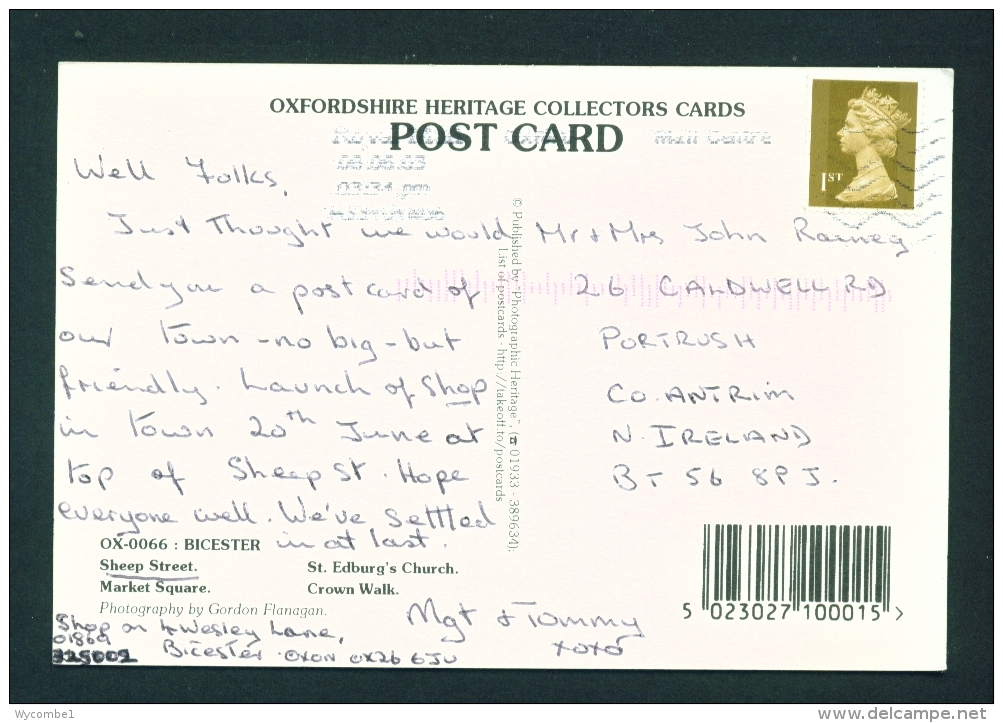 OXFORDSHIRE HERITAGE COLLECTORS CARDS
POST CARD
Mail Centre
03:31 pm
1ST
Well Folks,
Just Thought we would
Send you a post card of
our Town - no big - but
friendly. Launch of Shop
in Town 20th June at
top of Sheep St. Hope
everyone well. We've Settled
in at last.
Mgt & Tommy
xoxo
Shop on 4 Wesley Lane,
01869
Bicester. OXON OX26 6JU
Mr & Mrs John Rainey
26 CALDWELL RD
PORTRUSH
CO. ANTRIM
N. IRELAND
BT 56 8PJ.
© Published by "Photographic Heritage", (☎ 01933 - 389634):
List of postcards - http://takeoff.to/postcards
OX-0066 : BICESTER
Sheep Street. St. Edburg's Church.
Market Square. Crown Walk.
Photography by Gordon Flanagan.
5 023027 100015 >
Wycombe1
www.delcampe.net